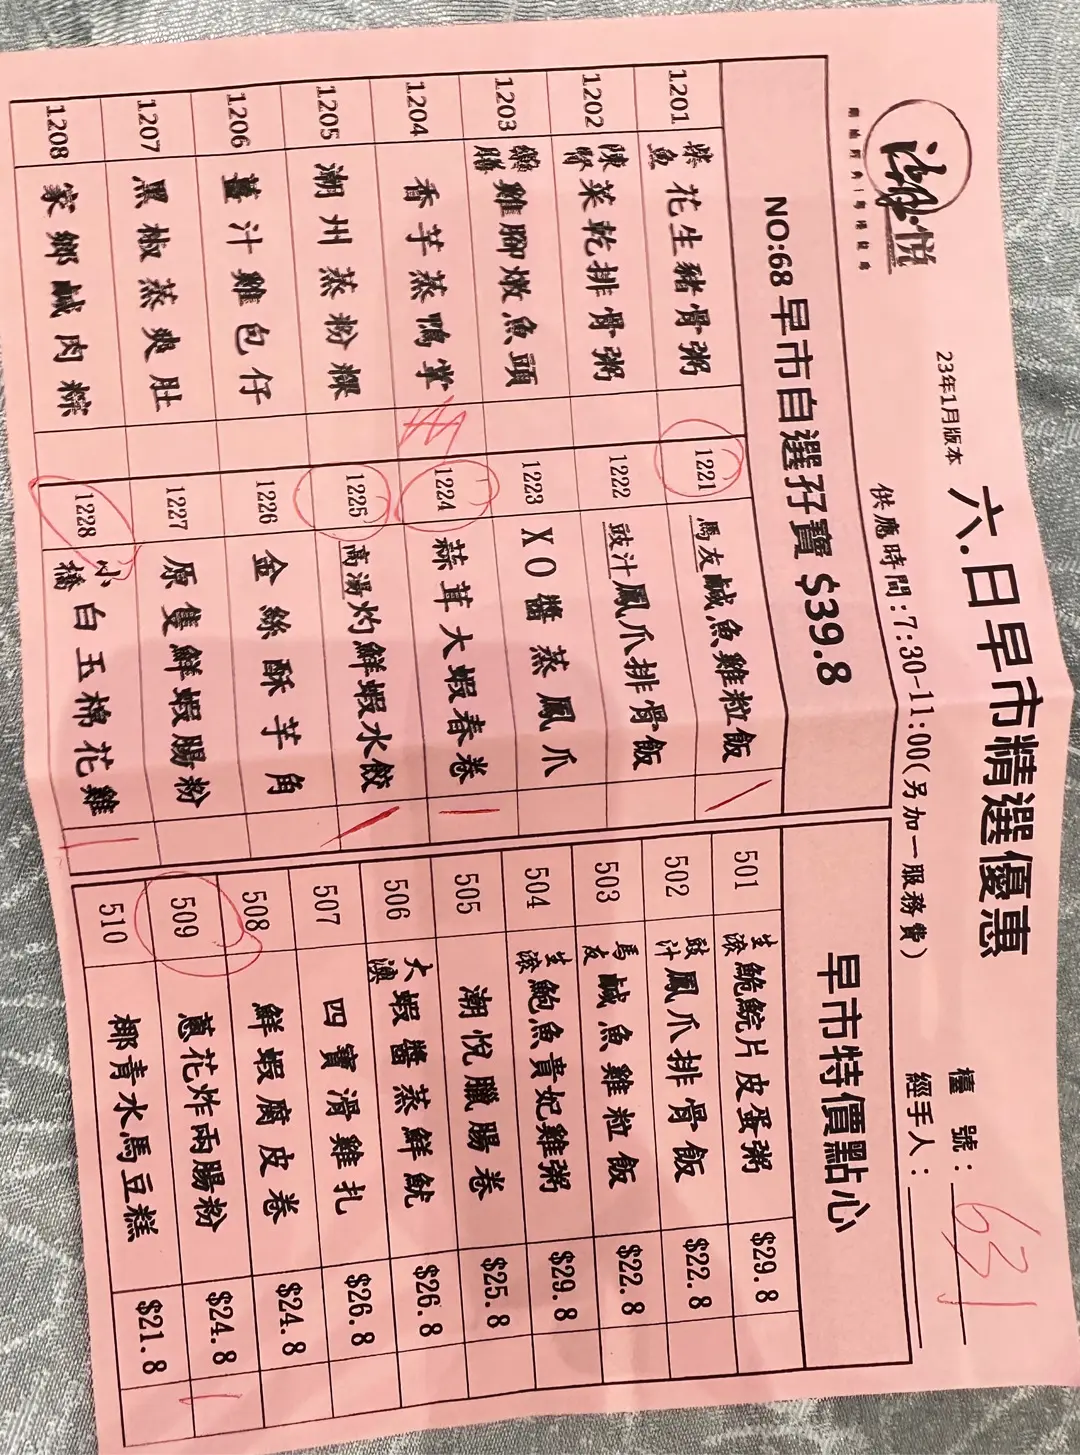 六.日早市精選優惠
23年1月版本
供應時間:7:30-11:00(另加一服務費)
檯號: 631
經手人:
NO:68 早市自選孖寶 $39.8
1201 柴魚花生豬骨粥
1202 陳腎菜乾排骨粥
1203 雞腳燉魚頭
1204 香芋蒸鴨掌
1205 潮州蒸粉粿
1206 薑汁雞包仔
1207 黑椒蒸爽肚
1208 家鄉鹹肉粽
1221 馬友鹹魚雞粒飯
1222 豉汁鳳爪排骨飯
1223 XO醬蒸鳳爪
1224 蒜茸大蝦春卷
1225 高湯灼鮮蝦水餃
1226 金絲酥芋角
1227 原隻鮮蝦腸粉
1228 小橋白玉棉花雞
早市特價點心
501 生滾鮠鯇片皮蛋粥 $29.8
502 豉汁鳳爪排骨飯 $22.8
503 馬友鹹魚雞粒飯 $22.8
504 生滾鮑魚貴妃雞粥 $29.8
505 潮悅臘腸卷 $25.8
506 大澳蝦醬蒸鮮魷 $26.8
507 四寶滑雞扎 $26.8
508 鮮蝦腐皮卷 $24.8
509 蔥花炸兩腸粉 $24.8
510 椰青水馬豆糕 $21.8